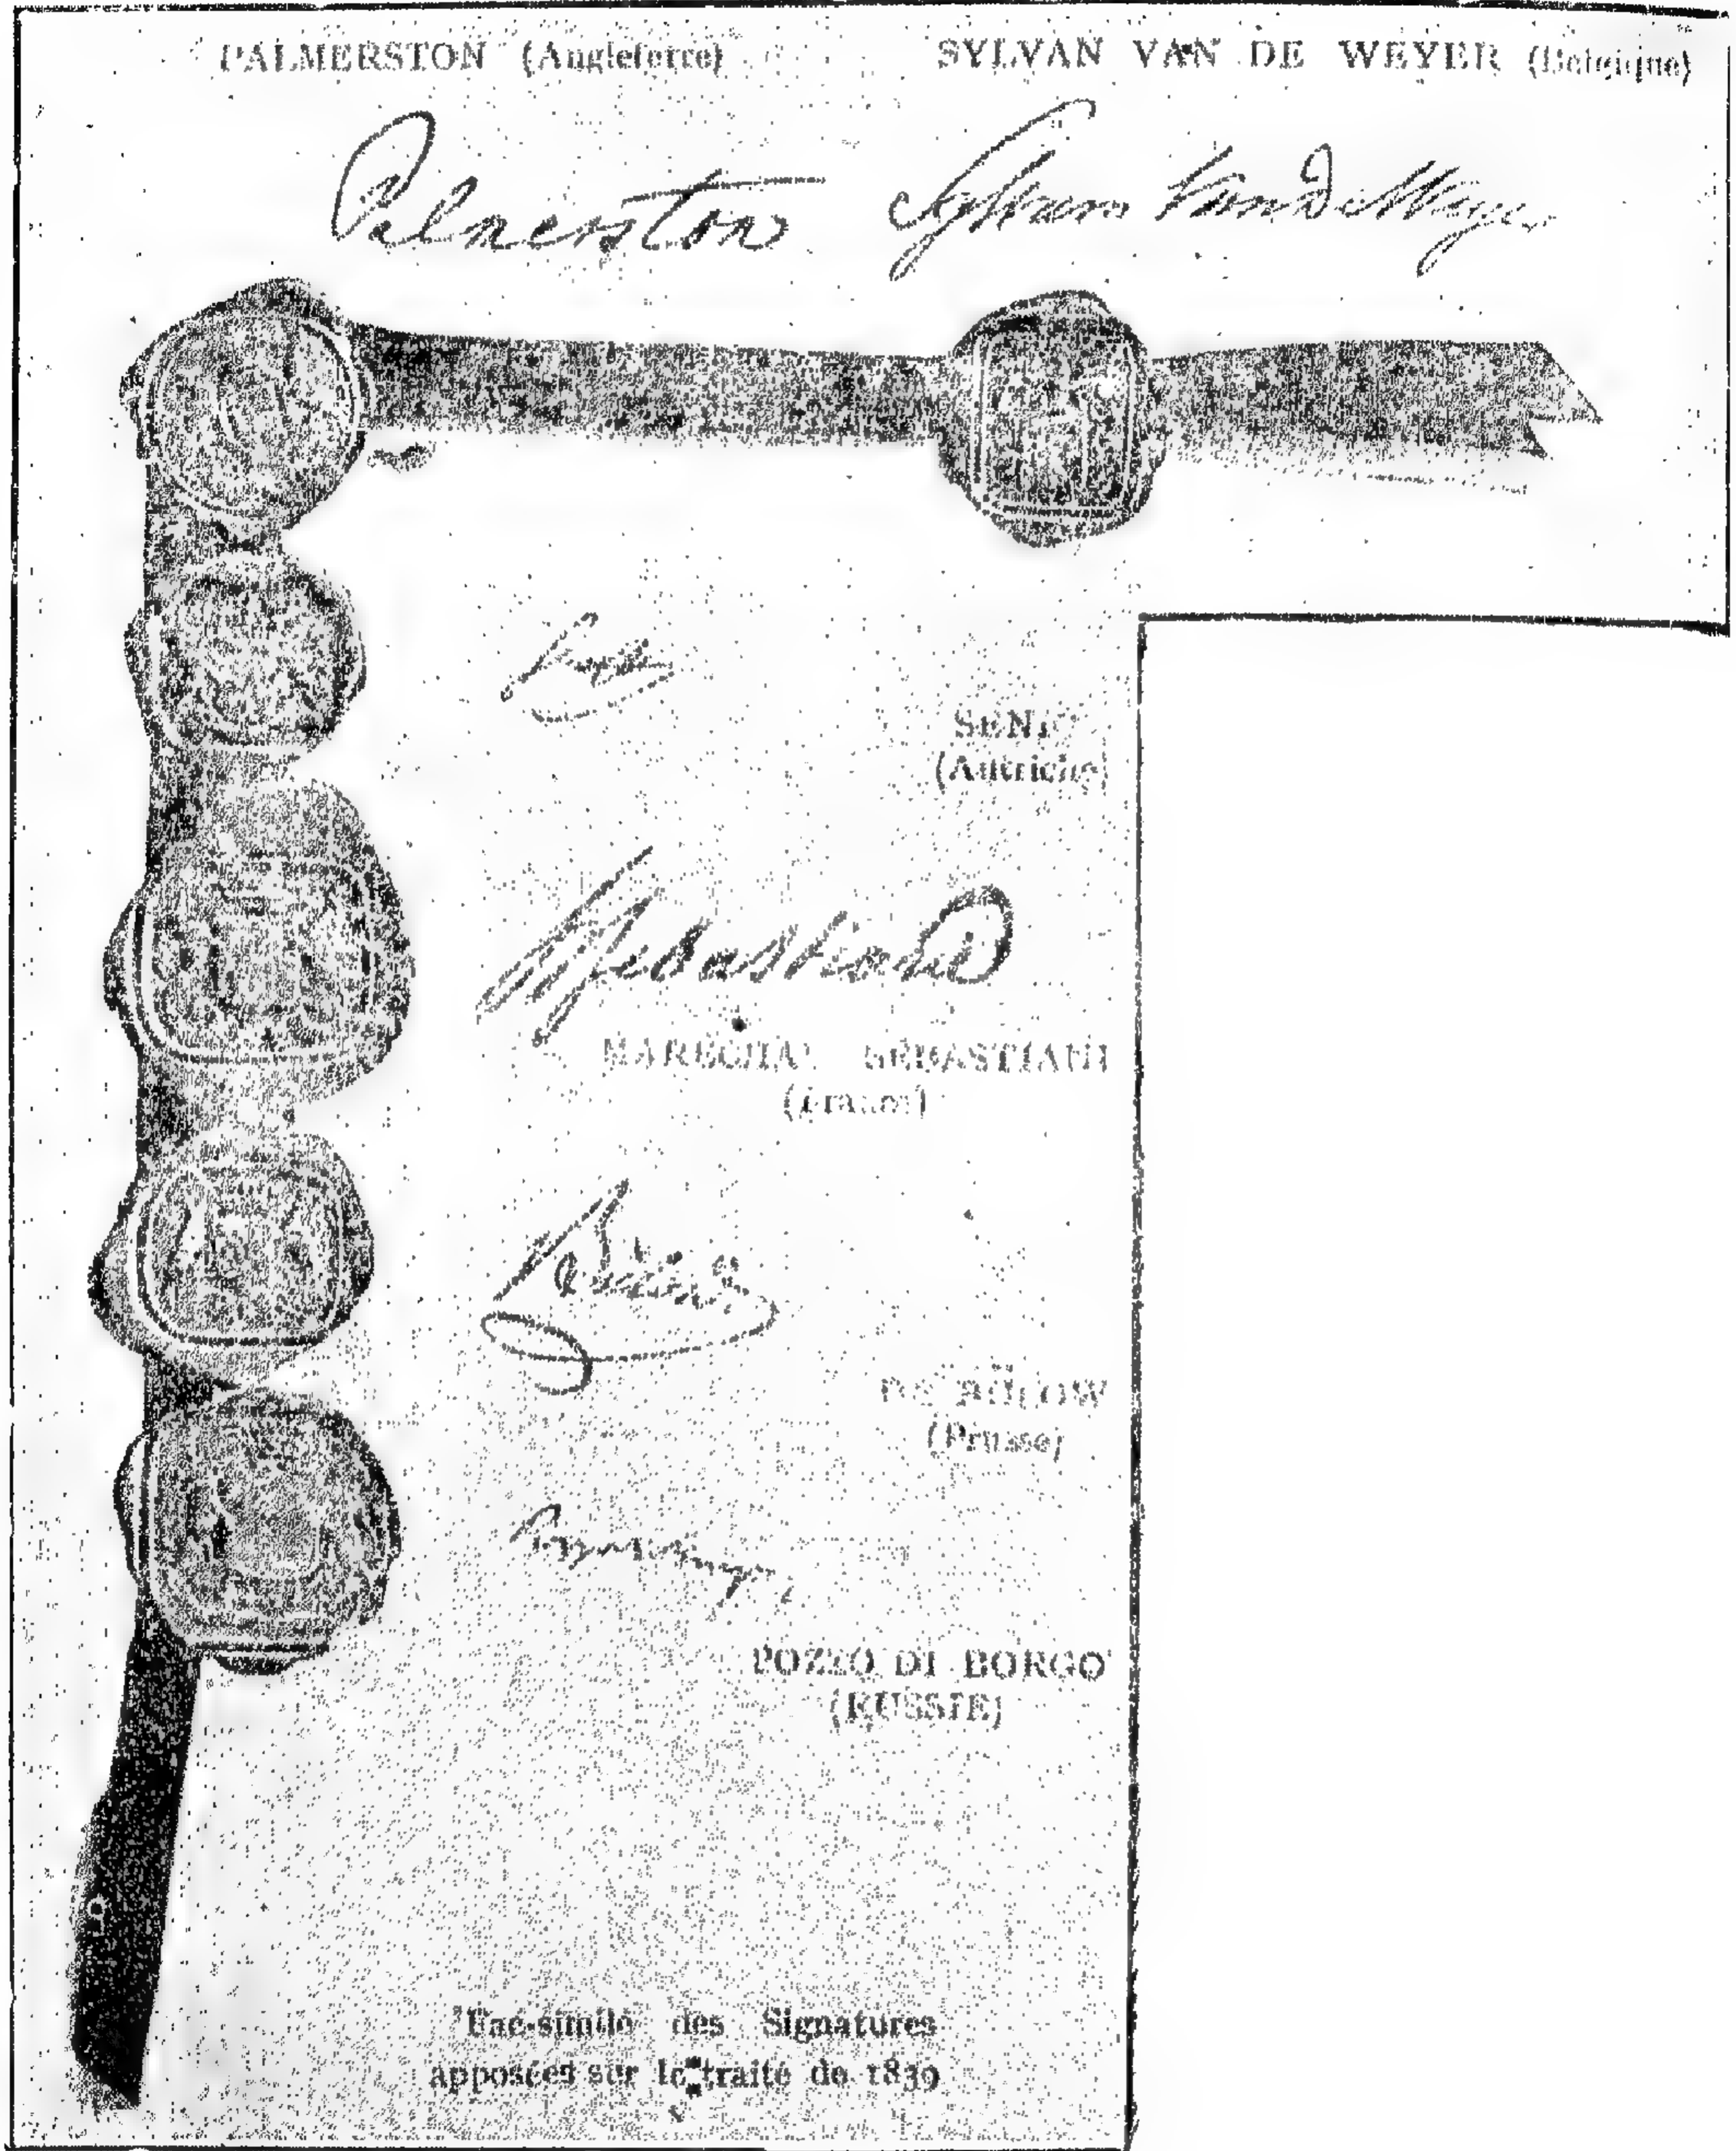 PALMERSTON (Angleterre)
SYLVAN VAN DE WEYER (Belgique)
Palmerston
Sylvan Van De Weyer
(Autriche)
Sebastiani
MARECHAL SEBASTIANI
(France)
DE BÜLOW
(Prusse)
POZZO DI BORGO
(RUSSIE)
Fac-similé des Signatures
apposées sur le traité de 1839